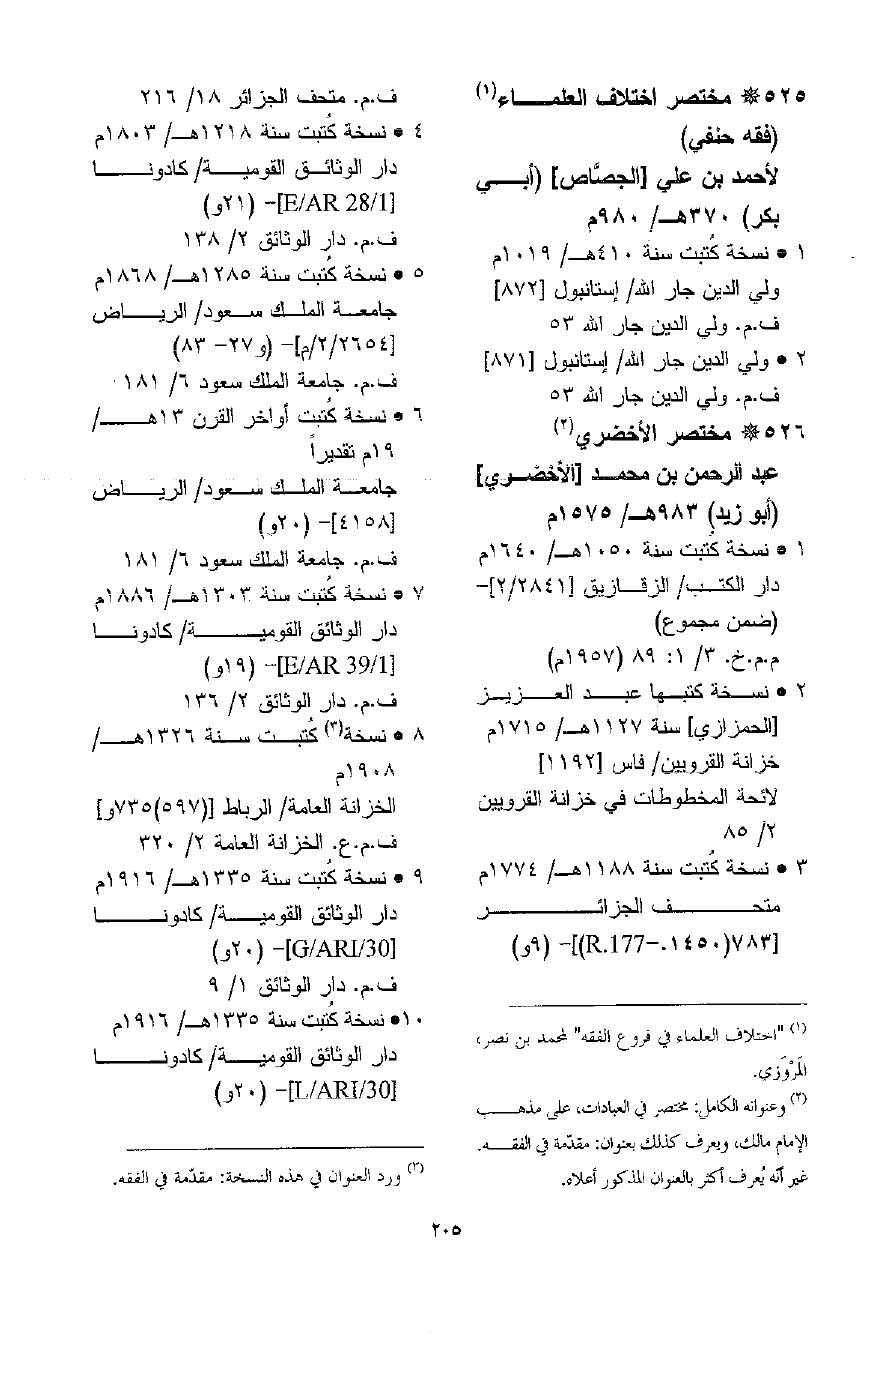 ٥٢٥ ❊ مختصر اختلاف العلمـــــاء(١)
(فقه حنفي)
لأحمد بن علي [الجصَّاص] (أبـــي
بكر) ٣٧٠هـ/ ٩٨٠م
١ • نسخة كُتبت سنة ٤١٠هـ/ ١٠١٩م
ولي الدين جار الله/ إستانبول [٨٧٢]
ف.م. ولي الدين جار الله ٥٣
٢ • ولي الدين جار الله/ إستانبول [٨٧١]
ف.م. ولي الدين جار الله ٥٣
٥٢٦ ❊ مختصر الأخضري(٢)
عبد الرحمن بن محمـد [الأخضـري]
(أبو زيد) ٩٨٣هـ/ ١٥٧٥م
١ • نسخة كُتبت سنة ١٠٥٠هـ/ ١٦٤٠م
دار الكتـب/ الزقـازيق [٢/٢٨٤١]-
(ضمن مجموع)
م.م.خ. ٣/ ١: ٨٩ (١٩٥٧م)
٢ • نسـخة كتبـها عبـد العـزيـز
[الحمزازي] سنة ١١٢٧هـ/ ١٧١٥م
خزانة القرويين/ فاس [١١٩٢]
لائحة المخطوطات في خزانة القرويين
٢/ ٨٥
٣ • نسخة كُتبت سنة ١١٨٨هـ/ ١٧٧٤م
متحـــــف الجزائـــــر
[٧٨٣(١٤٥٠.-R.177)]- (٩و)
(١) "اختلاف العلماء في فروع الفقه" لمحمد بن نصر،
المَرْوَزي.
(٢) وعنوانه الكامل: مختصر في العبادات، على مذهـب
الإمام مالك، ويعرف كذلك بعنوان: مقدّمة في الفقـه.
غير أنّه يُعرف أكثر بالعنوان المذكور أعلاه.
ف.م. متحف الجزائر ١٨/ ٢١٦
٤ • نسخة كُتبت سنة ١٢١٨هـ/ ١٨٠٣م
دار الوثائـق القوميـــة/ كادونـــا
[E/AR 28/1]- (٢١و)
ف.م. دار الوثائق ٢/ ١٣٨
٥ • نسخة كُتبت سنة ١٢٨٥هـ/ ١٨٦٨م
جامعـة الملـك سـعود/ الريـاض
[٢/٢٦٥٤/م]- (و٢٧- ٨٣)
ف.م. جامعة الملك سعود ٦/ ١٨١
٦ • نسخة كُتبت أواخر القرن ١٣هـــ/
١٩م تقديراً
جامعـة الملـك سـعود/ الريـاض
[٤١٥٨]- (٢٠و)
ف.م. جامعة الملك سعود ٦/ ١٨١
٧ • نسخة كُتبت سنة ١٣٠٣هـ/ ١٨٨٦م
دار الوثائق القوميـــــة/ كادونـــا
[E/AR 39/1]- (١٩و)
ف.م. دار الوثائق ٢/ ١٣٦
٨ • نسخة(٣) كُتبـت سـنة ١٣٢٦هـــ/
١٩٠٨م
الخزانة العامة/ الرباط [(٥٩٧)٧٣٥و]
ف.م.ع. الخزانة العامة ٢/ ٣٢٠
٩ • نسخة كُتبت سنة ١٣٣٥هـ/ ١٩١٦م
دار الوثائق القوميـــة/ كادونـــــا
[G/ARI/30]- (٢٠و)
ف.م. دار الوثائق ١/ ٩
١٠• نسخة كُتبت سنة ١٣٣٥هـ/ ١٩١٦م
دار الوثائق القوميـــة/ كادونـــــا
[L/ARI/30]- (٢٠و)
(٣) ورد العنوان في هذه النسخة: مقدّمة في الفقه.
٢٠٥